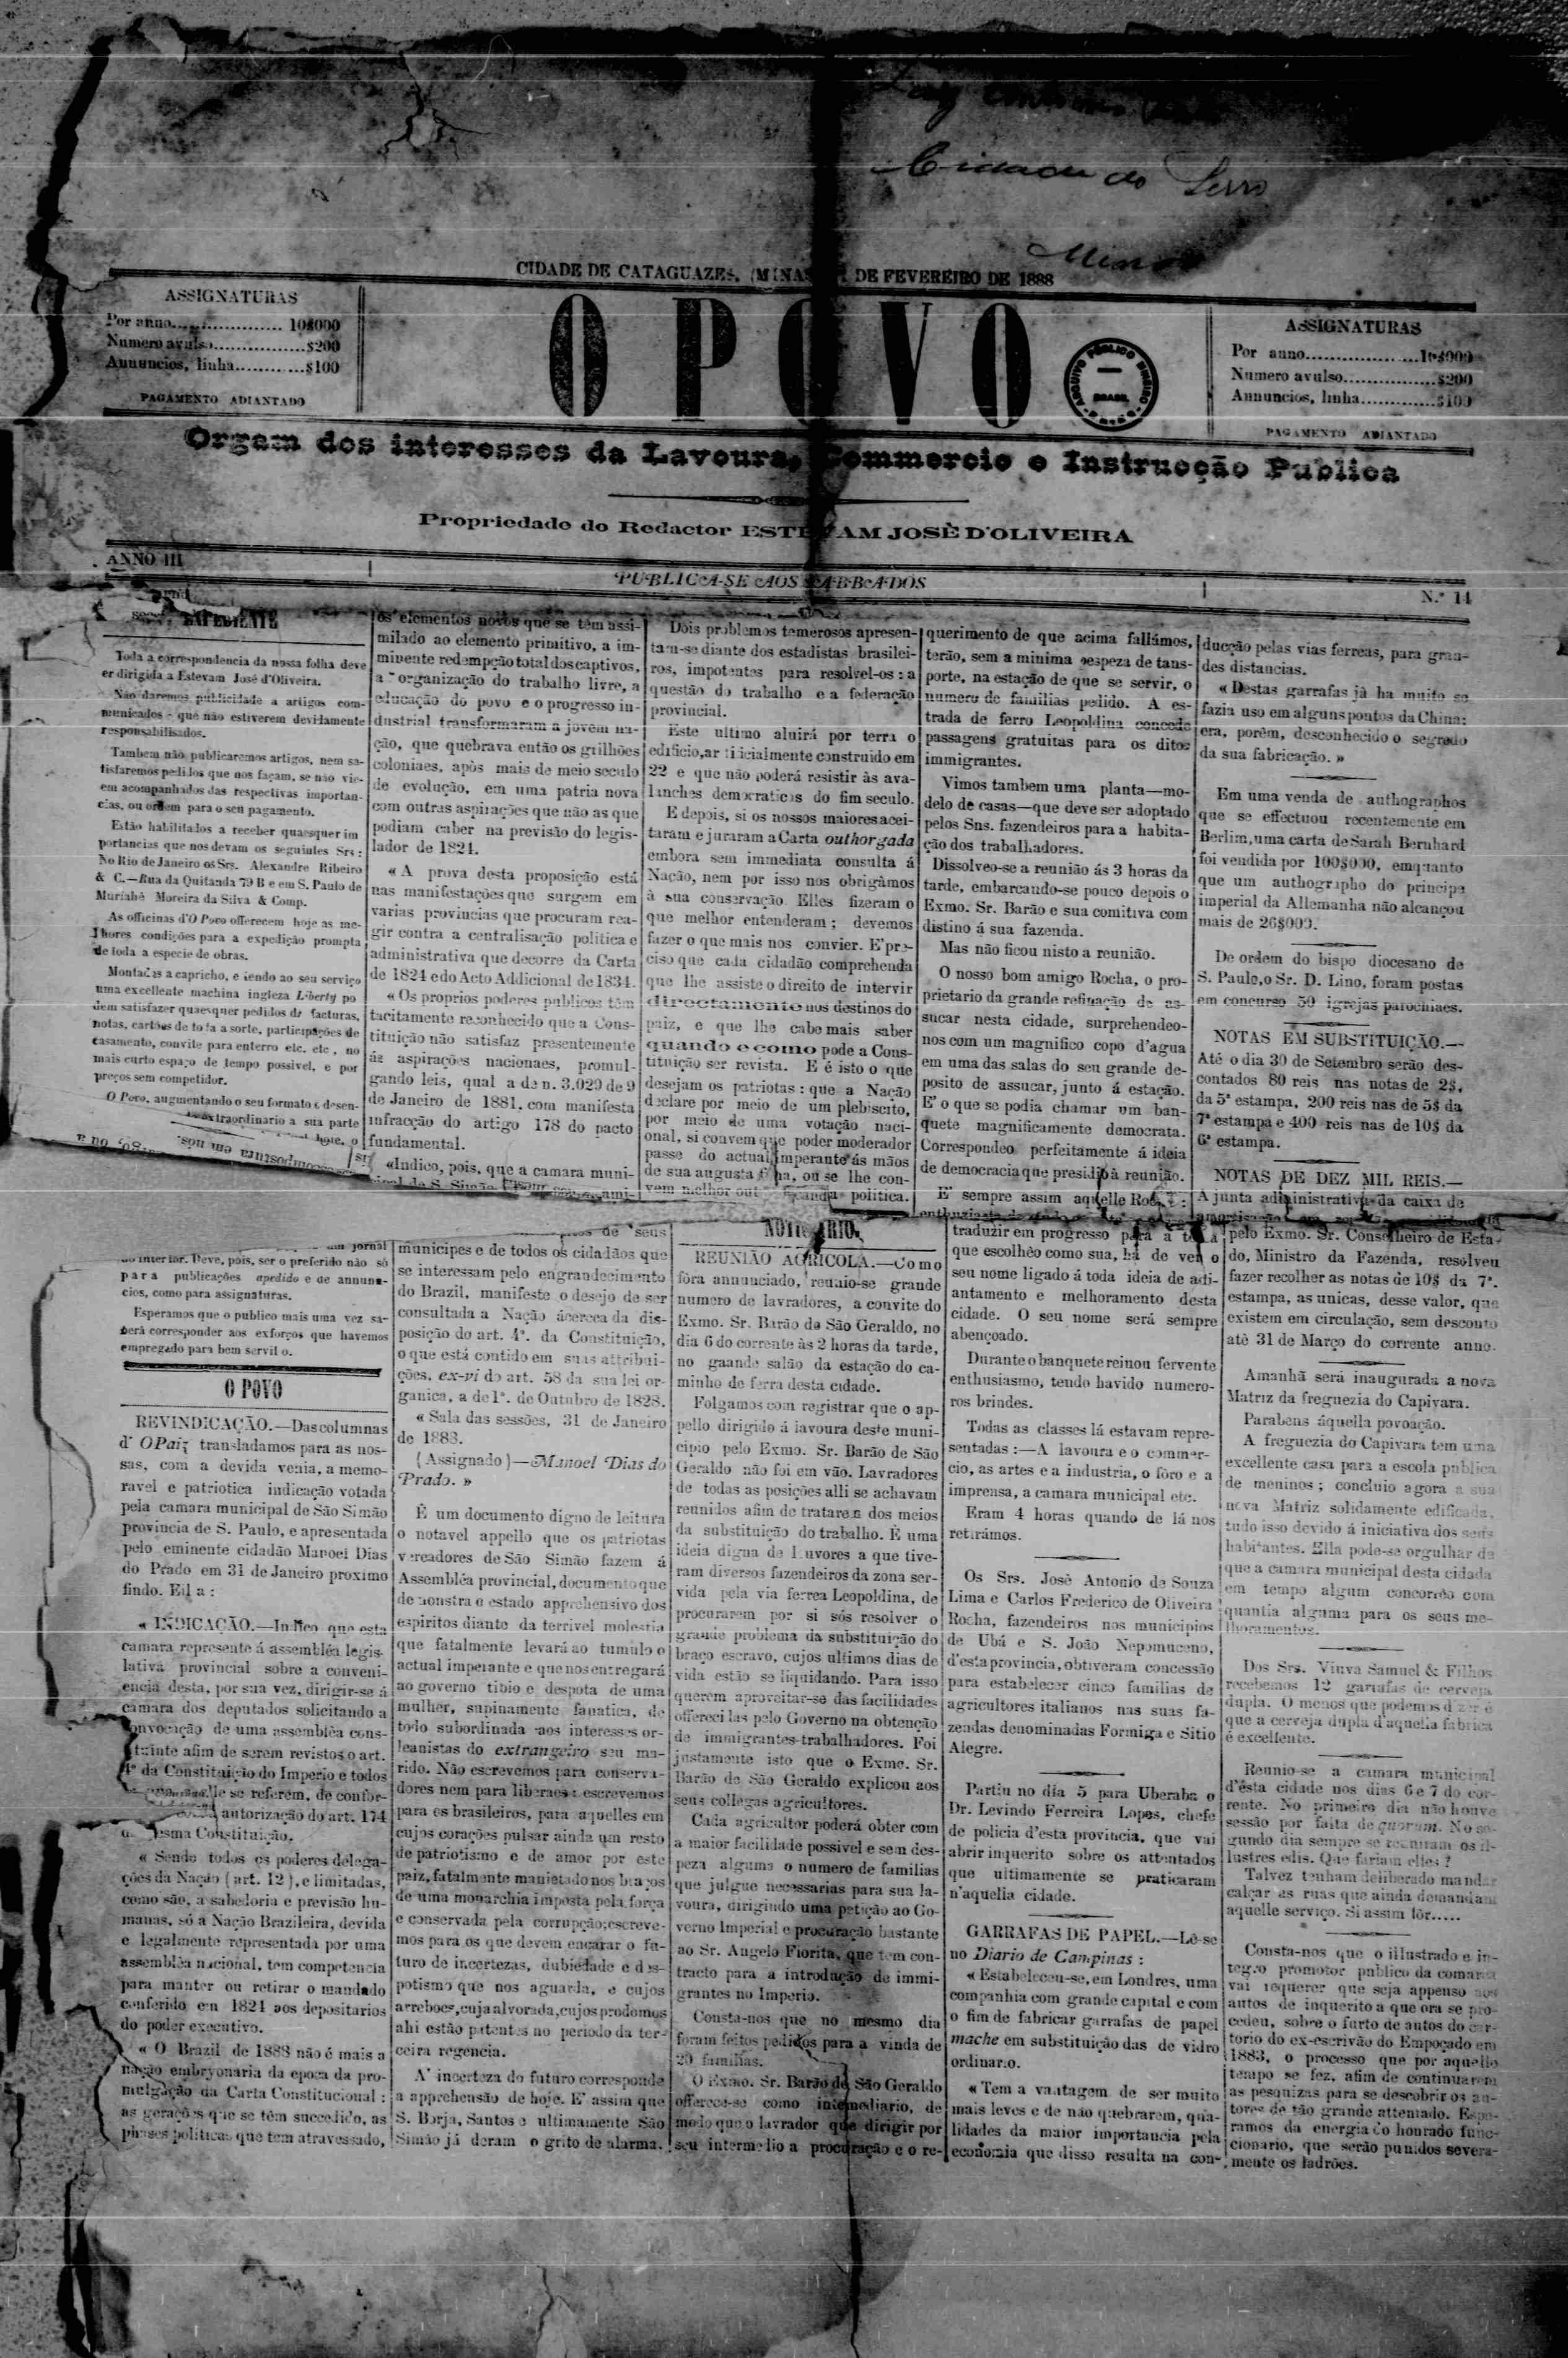 Cidade do Serro
Minas
CIDADE DE CATAGUAZES, (MINAS DE FEVEREIRO DE 1888
ASSIGNATURAS
Por anno 10$000
Numero avulso $200
Annuncios, linha $100
PAGAMENTO ADIANTADO
O POVO
ARQUIVO PUBLICO MINEIRO
BRASIL
ASSIGNATURAS
Por anno 10$000
Numero avulso $200
Annuncios, linha $100
PAGAMENTO ADIANTADO
Orgam dos interesses da Lavoura, Commercio e Instrucção Publica
Propriedade do Redactor ESTEVAM JOSÈ D'OLIVEIRA
ANNO III
PUBLICA-SE AOS SABBADOS
N.º 14
EXPEDIENTE
Toda a correspondencia da nossa folha deve
er dirigida a Estevam José d'Oliveira.
Não daremos publicidade a artigos com-
municados que não estiverem devidamente
responsabilisados.
Tambem não publicaremos artigos, nem sa-
tisfaremos pedidos que nos façam, se não vie-
em acompanhados das respectivas importan-
cias, ou ordem para o seu pagamento.
Estão habilitados a receber quaesquer im
portancias que nos devam os seguintes Srs:
No Rio de Janeiro os Srs. Alexandre Ribeiro
& C.—Rua da Quitanda 79 B e em S. Paulo de
Muriahé Moreira da Silva & Comp.
As officinas d'O Povo offerecem hoje as me-
lhores condições para a expedição prompta
de toda a especie de obras.
Montadas a capricho, e tendo ao seu serviço
uma excellente machina ingleza Liberty po
dem satisfazer quaesquer pedidos de facturas,
notas, cartões de toda a sorte, participações de
casamento, convite para enterro etc. etc, no
mais curto espaço de tempo possivel, e por
preços sem competidor.
O Povo, augmentando o seu formato e desen-
traordinario a sua parte
hoje, o
um jornal
do interior. Deve, pois, ser o preferido não só
para publicações apedido e de annun-
cios, como para assignaturas.
Esperamos que o publico mais uma vez sa-
berá corresponder aos exforços que havemos
empregado para bem servil o.
O POVO
REVINDICAÇÃO.—Das columnas
d' O Paiz transladamos para as nos-
sas, com a devida venia, a memo-
ravel e patriotica indicação votada
pela camara municipal de São Simão
provincia de S. Paulo, e apresentada
pelo eminente cidadão Manoel Dias
do Prado em 31 de Janeiro proximo
findo. Eil a:
« INDICAÇÃO.—Indico que esta
camara represente á assembléa legis-
lativa provincial sobre a conveni-
encia desta, por sua vez, dirigir-se á
camara dos deputados solicitando a
onvocação de uma assembléa cons-
tituinte afim de serem revistos o art.
4º da Constituição do Imperio e todos
lle se referem, de confor-
autorização do art. 174
esma Constituição.
« Sendo todos os poderes delega-
ções da Nação (art. 12), e limitadas,
como são, a sabedoria e previsão hu-
manas, só a Nação Brazileira, devida
e legalmente representada por uma
assembléa nacional, tem competencia
para manter ou retirar o mandado
conferido em 1824 aos depositarios
do poder executivo.
« O Brazil de 1888 não é mais a
nação embryonaria da epoca da pro-
mulgação da Carta Constitucional:
as gerações que se têm succedido, as
phases politicas que tem atravessado,
os elementos novos que se têm assi-
milado ao elemento primitivo, a im-
minente redempção total dos captivos,
a organização do trabalho livre, a
educação do povo e o progresso in-
dustrial transformaram a jovem na-
ção, que quebrava então os grilhões
coloniaes, após mais de meio seculo
de evolução, em uma patria nova
com outras aspirações que não as que
podiam caber na previsão do legis-
lador de 1824.
« A prova desta proposição está
nas manifestações que surgem em
varias provincias que procuram rea-
gir contra a centralisação politica e
administrativa que decorre da Carta
de 1824 e do Acto Addicional de 1834.
« Os proprios poderes publicos têm
tacitamente reconhecido que a Cons-
tituição não satisfaz presentemente
ás aspirações nacionaes, promul-
gando leis, qual a de n. 3.029 de 9
de Janeiro de 1881, com manifesta
infracção do artigo 178 do pacto
fundamental.
«Indico, pois, que a camara muni-
de seus
municipes e de todos os cidadãos que
se interessam pelo engrandecimento
do Brazil, manifeste o desejo de ser
consultada a Nação ácerca da dis-
posição do art. 4º. da Constituição,
o que está contido em suas attribui-
ções, ex-vi do art. 58 da sua lei or-
ganica, a de 1º. de Outubro de 1828.
« Sala das sessões, 31 de Janeiro
de 1888.
(Assignado)—Manoel Dias do
Prado. »
É um documento digno de leitura
o notavel appello que os patriotas
vereadores de São Simão fazem á
Assembléa provincial, documento que
demonstra o estado apprehensivo dos
espiritos diante da terrivel molestia
que fatalmente levará ao tumulo o
actual imperante e que nos entregará
ao governo tibio e despota de uma
mulher, supinamente fanatica, de
todo subordinada aos interesses or-
leanistas do extrangeiro seu ma-
rido. Não escrevemos para conserva-
dores nem para liberaes: escrevemos
para os brasileiros, para aquelles em
cujos corações pulsar ainda um resto
de patriotismo e de amor por este
paiz, fatalmente manietado nos braços
de uma monarchia imposta pela força
e conservada pela corrupção; escreve-
mos para os que devem encarar o fu-
turo de incertezas, dubiedade e des-
potismo que nos aguarda, e cujos
arreboes, cuja alvorada, cujos prodomos
ahi estão patentes no periodo da ter-
ceira regencia.
A' incerteza do futuro corresponde
a apprehensão de hoje. E' assim que
S. Borja, Santos e ultimamente São
Simão já deram o grito de alarma.
Dois problemas temerosos apresen-
tam-se diante dos estadistas brasilei-
ros, impotentes para resolvel-os: a
questão do trabalho e a federação
provincial.
Este ultimo aluirá por terra o
edificio, artificialmente construido em
22 e que não poderá resistir ás ava-
lanches democraticas do fim seculo.
E depois, si os nossos maiores acei-
taram e juraram a Carta outhorgada
embora sem immediata consulta á
Nação, nem por isso nos obrigâmos
à sua conservação Elles fizeram o
que melhor entenderam; devemos
fazer o que mais nos convier. E' pre-
ciso que cada cidadão comprehenda
que lhe assiste o direito de intervir
directamente nos destinos do
paiz, e que lhe cabe mais saber
quando e como pode a Cons-
tituição ser revista. E é isto o que
desejam os patriotas: que a Nação
declare por meio de um plebiscito,
por meio de uma votação naci-
onal, si convem que poder moderador
passe do actual imperante ás mãos
de sua augusta filha, ou se lhe con-
vem melhor politica.
NOTICIARIO
REUNIÃO AGRICOLA.—Como
fôra annunciado, reunio-se grande
numero de lavradores, a convite do
Exmo. Sr. Barão de São Geraldo, no
dia 6 do corrente às 2 horas da tarde,
no gaande salão da estação do ca-
minho de ferra desta cidade.
Folgamos com registrar que o ap-
pello dirigido á lavoura deste muni-
cipio pelo Exmo. Sr. Barão de São
Geraldo não foi em vão. Lavradores
de todas as posições alli se achavam
reunidos afim de tratarem dos meios
da substituição do trabalho. É uma
ideia digna de louvores a que tive-
ram diversos fazendeiros da zona ser-
vida pela via ferrea Leopoldina, de
procurarem por si sós resolver o
grande problema da substituição do
braço escravo, cujos ultimos dias de
vida estão se liquidando. Para isso
querem aproveitar-se das facilidades
offerecidas pelo Governo na obtenção
de immigrantes-trabalhadores. Foi
justamente isto que o Exmo. Sr.
Barão de São Geraldo explicou aos
seus collegas agricultores.
Cada agricultor poderá obter com
a maior facilidade possivel e sem des-
peza alguma o numero de familias
que julgue necessarias para sua la-
voura, dirigindo uma petição ao Go-
verno Imperial e procuração bastante
ao Sr. Angelo Fiorita, que tem con-
tracto para a introdução de immi-
grantes no Imperio.
Consta-nos que no mesmo dia
foram feitos pedidos para a vinda de
20 familias.
O Exmo. Sr. Barão de São Geraldo
offerece-se como intemediario, de
modo que o lavrador que dirigir por
seu intermedio a procuração e o re-
querimento de que acima fallámos,
terão, sem a minima despeza de tans-
porte, na estação de que se servir, o
numero de familias pedido. A es-
trada de ferro Leopoldina concede
passagens gratuitas para os ditos
immigrantes.
Vimos tambem uma planta—mo-
delo de casas—que deve ser adoptado
pelos Sns. fazendeiros para a habita-
ção dos trabalhadores.
Dissolveo-se a reunião ás 3 horas da
tarde, embarcando-se pouco depois o
Exmo. Sr. Barão e sua comitiva com
distino á sua fazenda.
Mas não ficou nisto a reunião.
O nosso bom amigo Rocha, o pro-
prietario da grande refinação de as-
sucar nesta cidade, surprehendeo-
nos com um magnifico copo d'agua
em uma das salas do seu grande de-
posito de assucar, junto á estação.
E' o que se podia chamar um ban-
quete magnificamente democrata.
Correspondeo perfeitamente á ideia
de democracia que presidio à reunião.
E' sempre assim aquelle Rocha:
traduzir em progresso para a terra
que escolhêo como sua, há de ver o
seu nome ligado á toda ideia de adi-
antamento e melhoramento desta
cidade. O seu nome será sempre
abençoado.
Durante o banquete reinou fervente
enthusiasmo, tendo havido numero-
ros brindes.
Todas as classes lá estavam repre-
sentadas:—A lavoura e o commer-
cio, as artes e a industria, o fôro e a
imprensa, a camara municipal etc.
Eram 4 horas quando de lá nos
retirámos.
Os Srs. José Antonio de Souza
Lima e Carlos Frederico de Oliveira
Rocha, fazendeiros nos municipios
de Ubá e S. João Nepomuceno,
d'esta provincia, obtiveram concessão
para estabelecer cinco familias de
agricultores italianos nas suas fa-
zendas denominadas Formiga e Sitio
Alegre.
Partiu no dia 5 para Uberaba o
Dr. Levindo Ferreira Lopes, chefe
de policia d'esta provincia, que vai
abrir inquerito sobre os attentados
que ultimamente se praticaram
n'aquella cidade.
GARRAFAS DE PAPEL.—Lê-se
no Diario de Campinas:
« Estabeleceu-se, em Londres, uma
companhia com grande capital e com
o fim de fabricar garrafas de papel
mache em substituição das de vidro
ordinario.
« Tem a vantagem de ser muito
mais leves e de não quebrarem, qua-
lidades da maior importancia pela
economia que disso resulta na con-
ducção pelas vias ferreas, para gran-
des distancias.
« Destas garrafas já ha muito se
fazia uso em alguns pontos da China;
era, porém, desconhecido o segredo
da sua fabricação. »
Em uma venda de authographos
que se effectuou recentemente em
Berlim, uma carta de Sarah Bernhard
foi vendida por 100$000, emquanto
que um authographo do principe
imperial da Allemanha não alcançou
mais de 26$000.
De ordem do bispo diocesano de
S. Paulo, o Sr. D. Lino, foram postas
em concurso 50 igrejas parochiaes.
NOTAS EM SUBSTITUIÇÃO.—
Até o dia 30 de Setembro serão des-
contados 80 reis nas notas de 2$,
da 5ª estampa, 200 reis nas de 5$ da
7ª estampa e 400 reis nas de 10$ da
6ª estampa.
NOTAS DE DEZ MIL REIS.—
A junta administrativa da caixa de
pelo Exmo. Sr. Conselheiro de Esta-
do, Ministro da Fazenda, resolveu
fazer recolher as notas de 10$ da 7ª.
estampa, as unicas, desse valor, que
existem em circulação, sem desconto
até 31 de Março do corrente anno.
Amanhã será inaugurada a nova
Matriz da freguezia do Capivara.
Parabens áquella povoação.
A freguezia do Capivara tem uma
excellente casa para a escola publica
de meninos; concluio agora a sua
nova Matriz solidamente edificada,
tudo isso devido á iniciativa dos seus
habitantes. Ella pode-se orgulhar de
que a camara municipal desta cidade
em tempo algum concorrêo com
quantia alguma para os seus me-
lhoramentos.
Dos Srs. Viuva Samuel & Filhos
recebemos 12 garrafas de cerveja
dupla. O menos que podemos dizer é
que a cerveja dupla d'aquella fabrica
é excellente.
Reunio-se a camara municipal
d'ésta cidade nos dias 6 e 7 do cor-
rente. No primeiro dia não houve
sessão por falta de quorum. No se-
gundo dia sempre se reuniram os il-
lustres edis. Que fariam elles?
Talvez tenham deliberado mandar
calçar as ruas que ainda demandam
aquelle serviço. Si assim fôr.....
Consta-nos que o illustrado e in-
tegro promotor publico da comarca
vai requerer que seja appenso aos
autos de inquerito a que ora se pro-
cedeu, sobre o furto de autos do car-
torio do ex-escrivão do Empoçado em
1883, o processo que por aquelle
tempo se fez, afim de continuarem
as pesquizas para se descobrir os au-
tores de tão grande attentado. Espe-
ramos da energia do honrado func-
cionario, que serão punidos severa-
mente os ladrões.